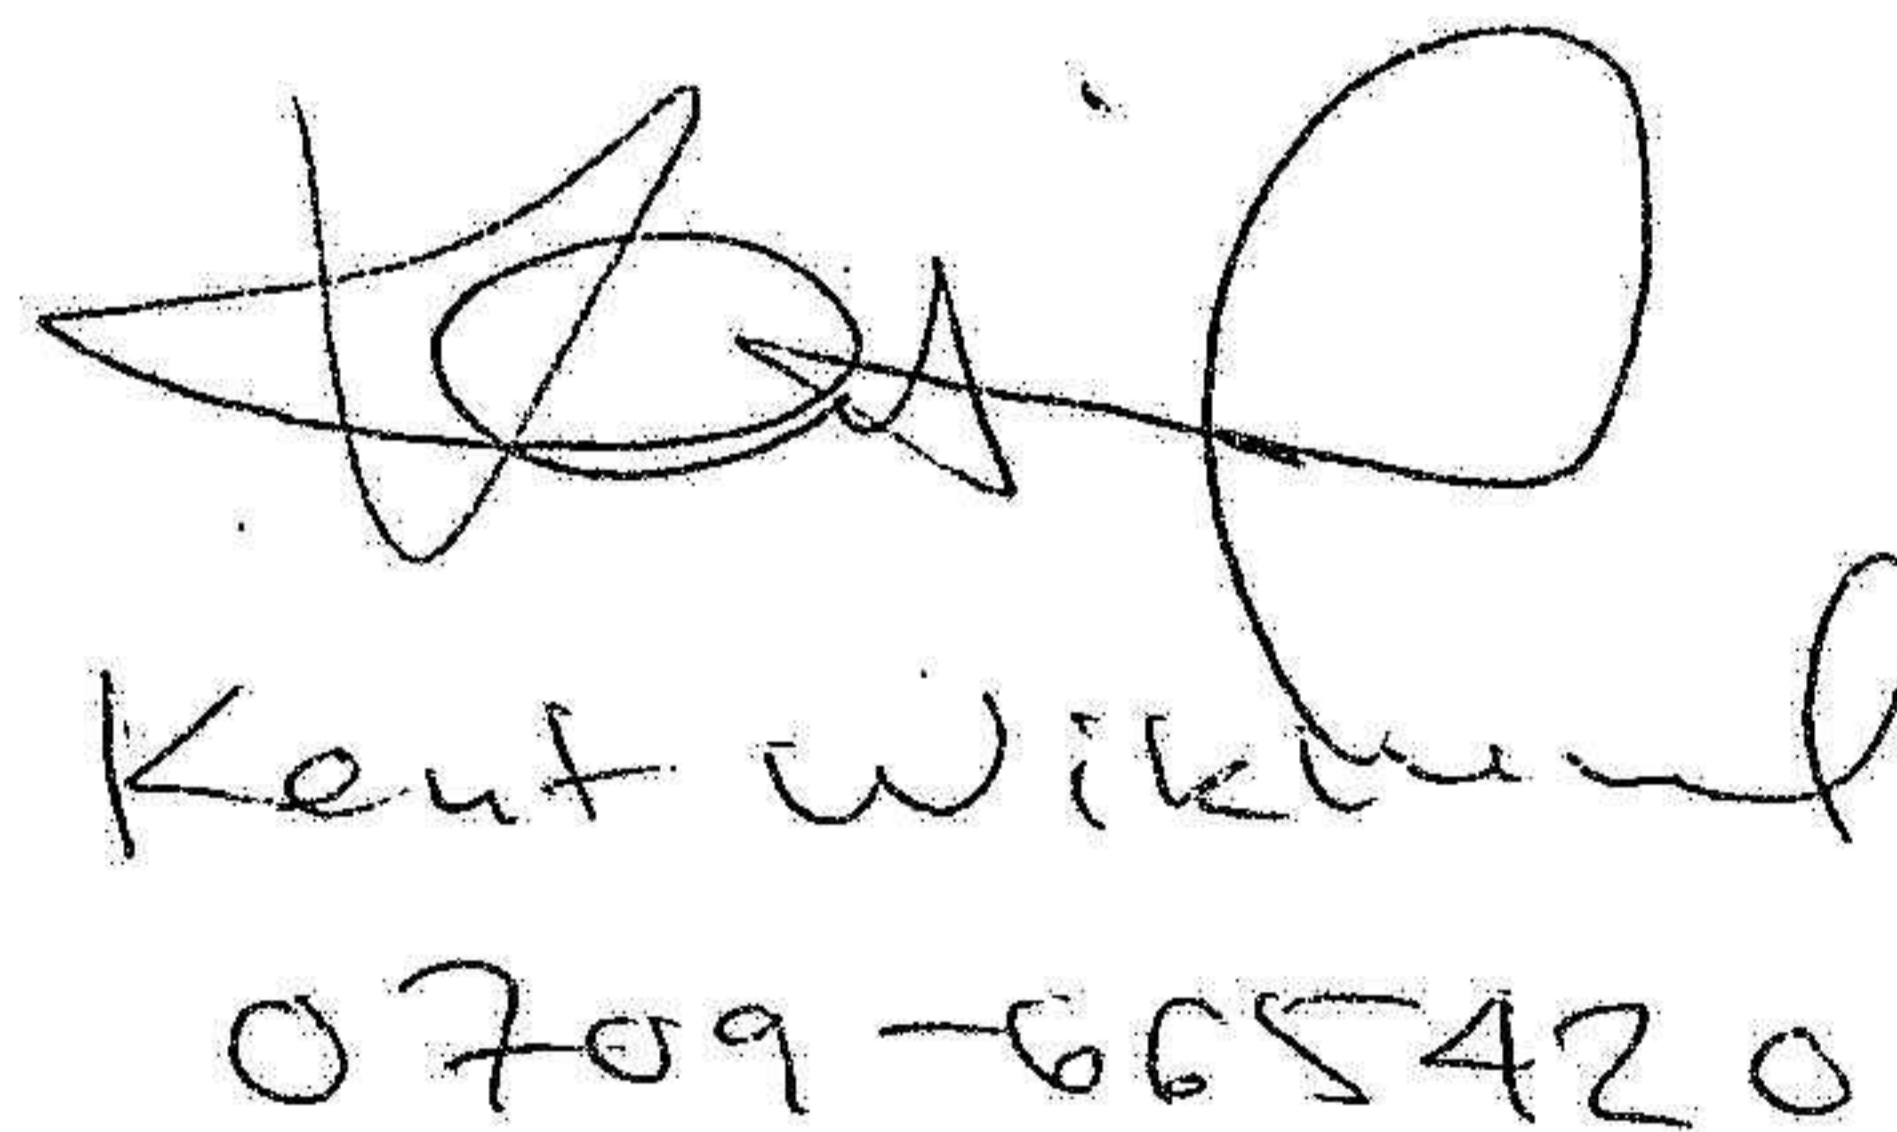 Kent Wiklund
0709-665420